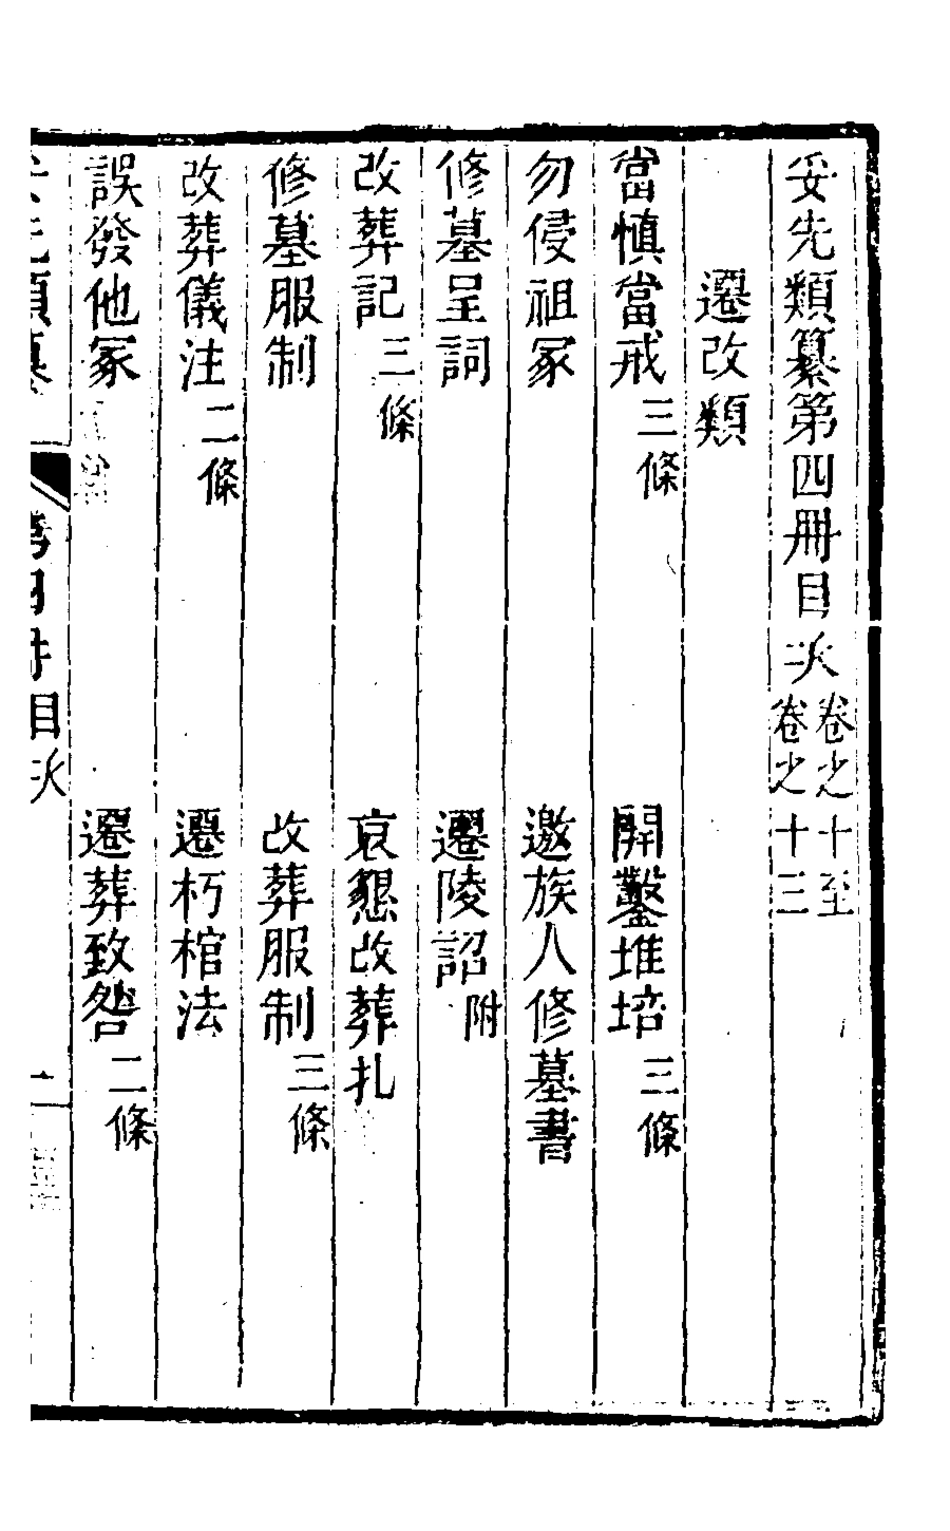 妥先類纂第四冊目次卷之十至卷之十三
遷改類
當慎當戒三條　開鑿堆培三條
勿侵祖冢　邀族人修墓書
修墓呈詞　遷陵詔附
改葬記三條　哀懇改葬札
修墓服制　改葬服制三條
改葬儀注二條　遷朽棺法
誤發他冢　遷葬致咎二條
第四冊目次